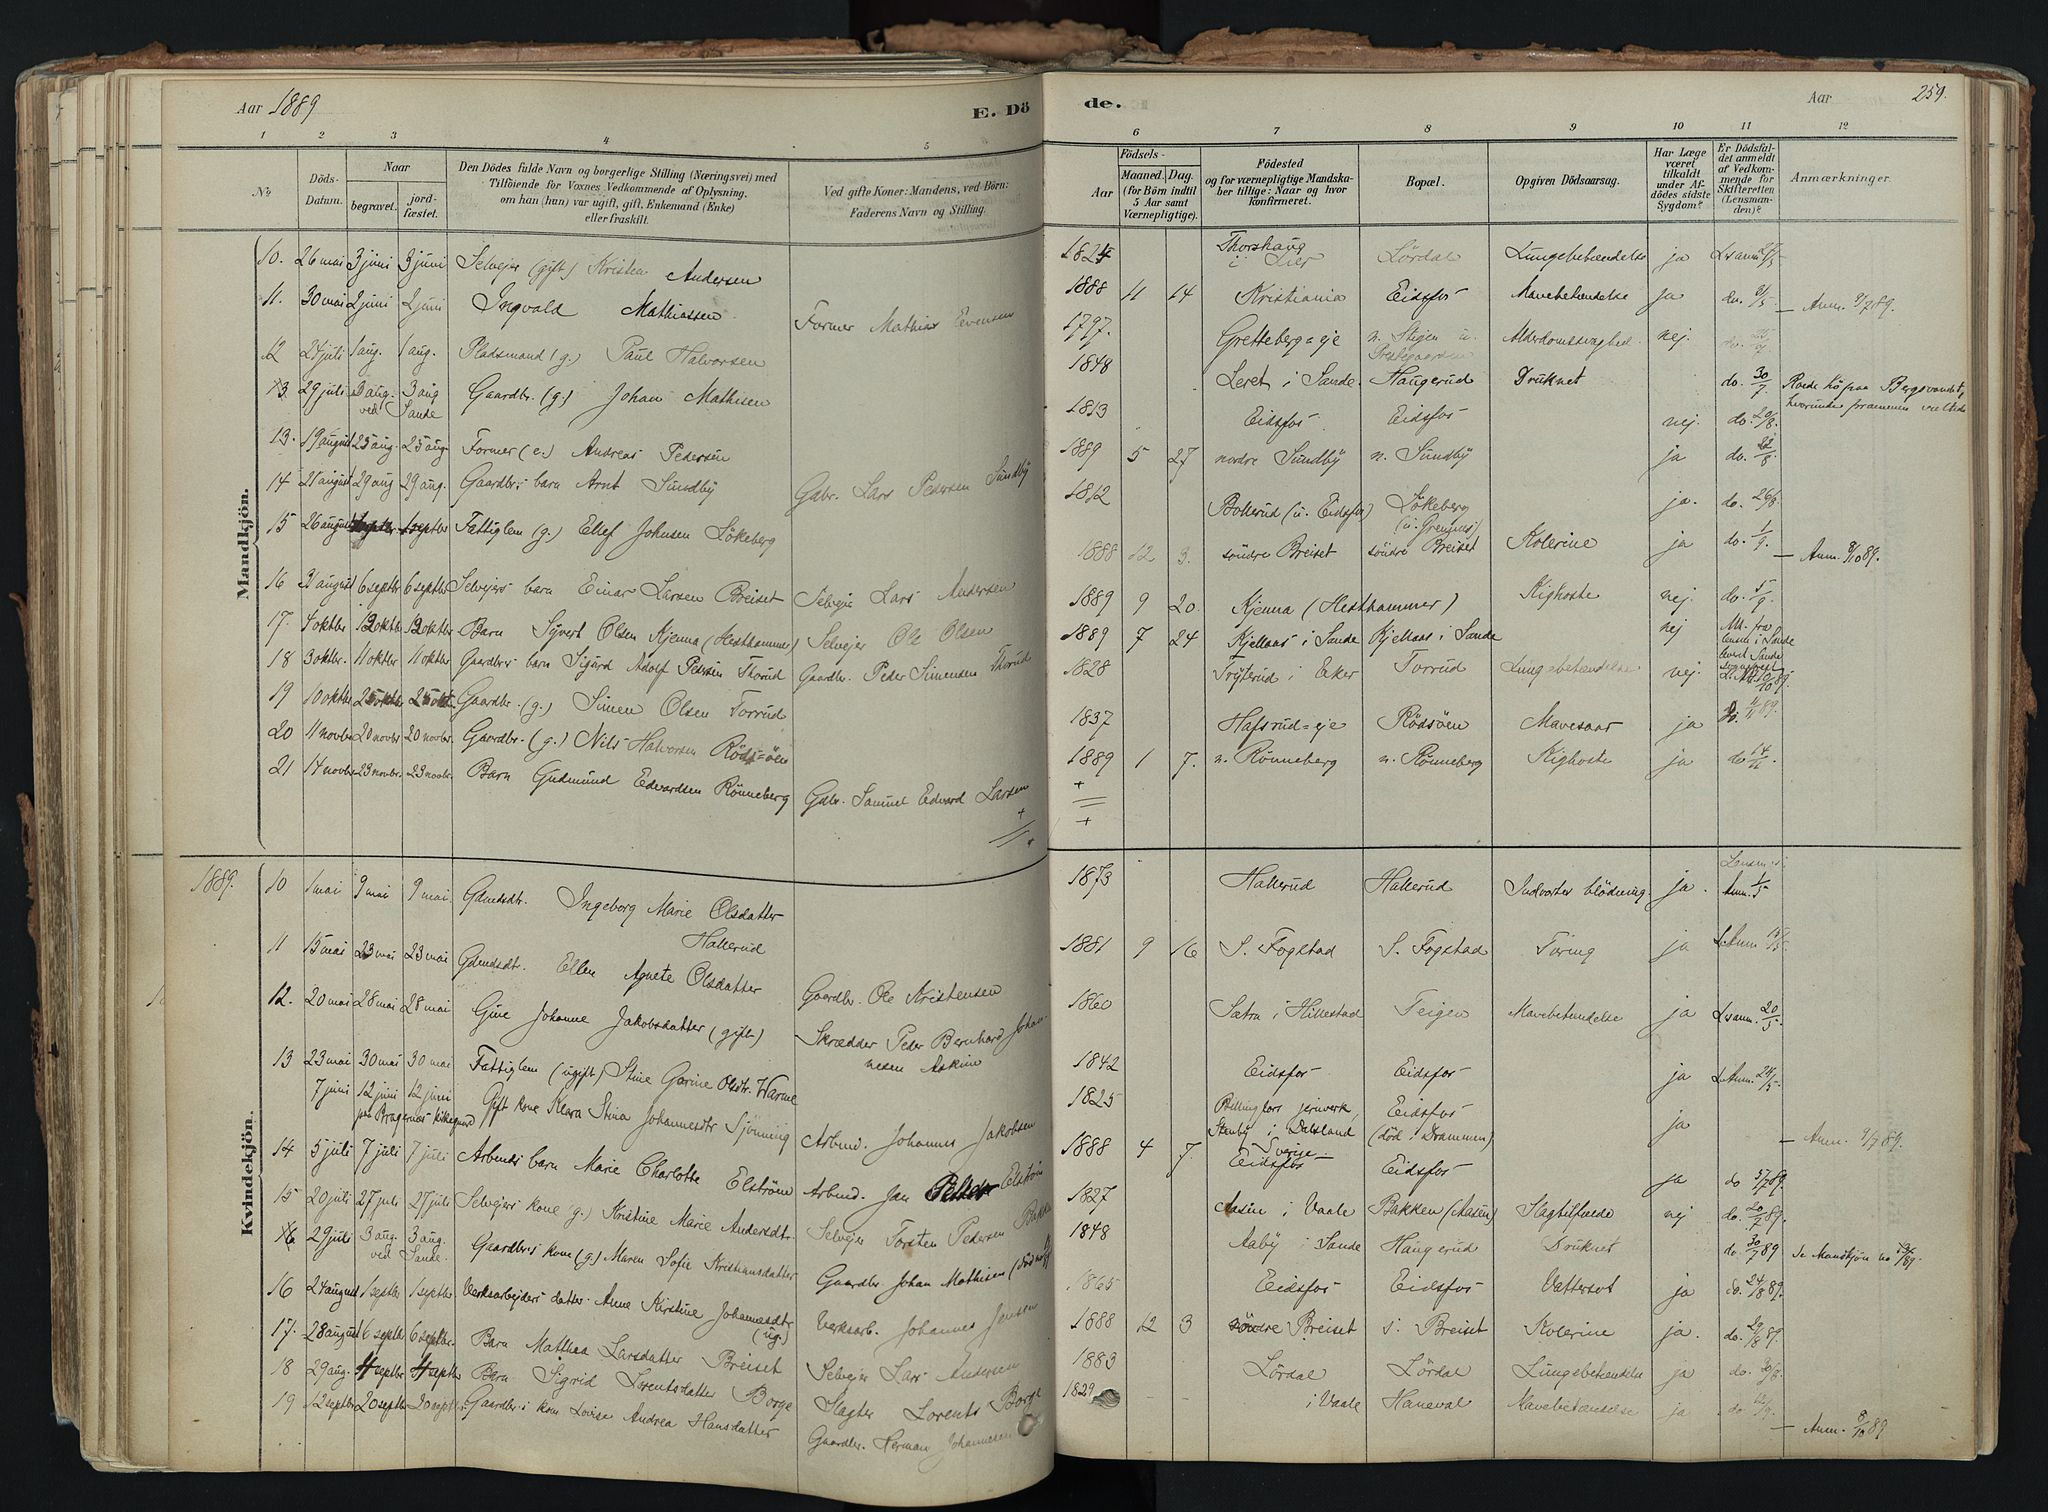 Aar 1889
E. Dö
de.
Aar
259.
1 2 3 4 5
6 7 8 9 10 11 12
No
Döds-
Datum.
Naar
begravet.
jord-
fæstet.
Den Dödes fulde Navn og borgerlige Stilling (Næringsvei) med
Tilföiende for Voxnes Vedkommende af Oplysning,
om han (hun) var ugift, gift, Enkemand (Enke)
eller fraskilt.
Ved gifte Koner: Mandens, ved Börn:
Faderens Navn og Stilling.
Födsels-
Aar
Maaned. Dag.
(for Börn indtil
5 Aar samt
Værnepligtige).
Födested
og for værnepligtige Mandska-
ber tillige: Naar og hvor
konfirmeret.
Bopæl.
Opgiven Dödsaarsag.
Har Læge
været
tilkaldt
under Af-
dödes sidste
Sygdom?
Er Dödsfal-
det anmeldt
af Vedkom-
mende for
Skifteretten
(Lensman-
den)?
Anmærkninger.
Mandkjön.
10. 26 mai 3 juni 3 juni Selvejer (gift) Kristen Andersen 1824 Thorshaug i Lier Lördal Lungebetændelse ja
11. 30 mai 2 juni 2 juni Ingvald Mathiassen Former Mathias Evensen 1888 11 14 Kristiania Eidsfos Mavebetændelse ja do. 31/5 Anm. 9/7 89.
12 24 juli 1 aug. 1 aug. Pladsmand (g.) Paul Halvorsen 1797. Gretteberg=eje n. Stigen u. Prestegaarden Alderdomssvaghed nej. do.
13 29 juli 3 aug. ved 3 aug Sande Gaardbr. (g.) Johan Mathisen 1848 Leret i Sande Haugerud Druknet do. 30/7 Roede kö paa Bergsvandet,
13. 19 august 25 aug. 25 aug. Former (e.) Andreas Pedersen 1813 Eidsfos Eidsfos nej. do. 20/8.
14 21 august 29 aug 29 aug. Gaardbr.s barn Arnt Sundby Gdbr. Lars Pedersen Sundby 1889 5 27 nordre Sundby n. Sundby ja do. 22/8
15 26 august 1 septbr 1 septbr Fattiglem (g.) Ellef Johnsen Lökeberg 1812 Bollerud (u. Eidsfos) Lökeberg ja. do. 26/8
16 31 august 6 septbr 6 septbr Selvejers barn Einar Larsen Breiset Selvejer Lars Andersen 1888 12 3. söndre Breiset söndre Breiset Kolerine ja do. 1/9. Anm. 8/10 89.
17. 4 oktbr 12 oktbr 12 oktbr Barn Syvert Olsen Kjenna (Hesthammer) Selvejer Ole Olsen 1889 9 20. Kjenna (Hesthammer) Kighoste nej. do. 5/9
18 3 oktbr. 11 oktbr 11 oktbr Gaardbrs barn Sigurd Adolf Pedersen Thorud Gaardbr. Peder Simensen Thorud 1889 7 24 Kjellaas i Sande Kjellaas i Sande nej
19 10 oktbr 25 oktbr 25 oktbr Gaardbr. (g.) Simen Olsen Torrud 1828 Tryterud i Eker Torrud Lungebetændelse nej.
20 11 novbr 20 novbr 20 novbr. Gaardbr. (g.) Nils Halvorsen Rödsöen 1837 Hafsrud=eje Rödsöen Mavesaar ja
21 14 novbr 23 novbr. 23 novbr. Barn Gudmund Edvardsen Rönneberg Gdbr. Samuel Edvard Larsen 1889 1 7. n. Rönneberg n. Rönneberg Kighoste ja do 14/11
1889.
Kvindekjön.
10 1 mai 9 mai 9 mai Gdmdsdtr. Ingeborg Marie Olsdatter Hallerud 1873 Hallerud Hallerud Indvortes blödning ja. Anm. 1/5
11 15 mai 23 mai 23 mai Gdmdsdtr. Ellen Agnete Olsdatter Gaardbr. Ole Kristensen 1881 9 16 S. Fogstad S. Fogstad Tæring ja
12. 20 mai 28 mai 28 mai Gine Johanne Jakobsdatter (gift) Skrædder Peder Bernhard Johannesen Askim 1860 Sætra i Hillestad Teigen Mavebetændelse ja Lsanm. 20/5
13 23 mai 30 mai 30 mai Fattiglem (ugift) Stine Gurine Olsdtr. Warme 1842 Eidsfos Eidsfos ja
7 juni 12 juni 12 juni paa Bragernæs kirkegaard Gift kone Klara Stina Johannesdtr Sjönning Arbmd. Johannes Jakobsen 1825 Billingfors jernverk, Steneby i Dalsland Sverige. Eidsfos (död i Drammen) ja Anm. 9/7 89.
14 5 juli 7 juli 7 juli Arbmds barn Marie Charlotte Elströin Arbmd. Jan 1888 4 7. Eidsfos Eidsfos ja do 5/7 89.
15 20 juli 27 juli 27 juli Selvejers kone (g.) Kristine Marie Andersdtr. Selvejer Torsten Pedersen Bakken 1827 Aasen i Vaale Bakken (Aasen) Slagtilfælde nej do. 20/7 89.
16 29 juli 3 aug. ved 3 aug. Sande. Gaardbr.s kone (g.) Maren Sofie Kristiansdatter Gaardbr. Johan Mathisen 1848 Aaby i Sande Haugerud Druknet do. 30/7 89
16 24 august 1 septbr 1 septbr Verksarbejders datter Anne Kirstine Johannesdtr (ug.) Verksarb. Johannes Jensen 1865 Eidsfos Eidsfos Vattersot ja do. 24/8 89.
17. 28 august 6 septbr 6 septbr. Barn Mathea Larsdatter Breiset Selvejer Lars Andersen 1888 12 3 söndre Breiset s. Breiset Kolerine ja. do. 29/8 89.
18 29 aug. 4 septbr 4 septbr Barn Sigrid Lorentsdatter Borge Slagter Lorents Borge 1883 Lördal Lördal Lungebetændelse ja do. 30/8.
19 12 septbr 20 septbr 20 septbr. Gaardbr.s kone Lovise Andrea Hansdatter Gaardbr. Herman Johannesen 1829 - - i Vaale Haneval Mavebetændelse ja do. Anm. 8/10 89.